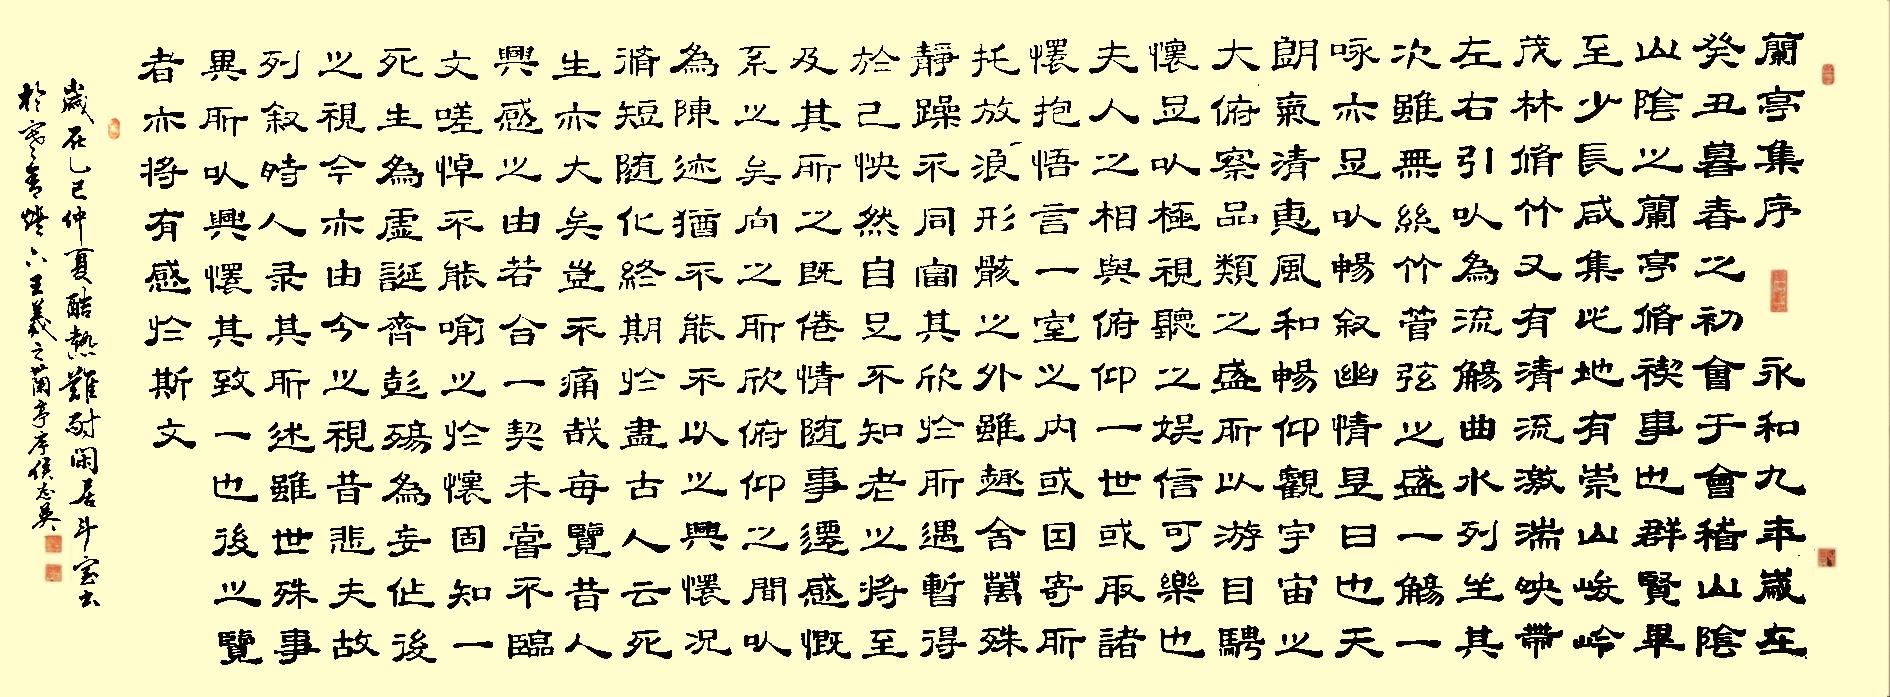 蘭亭集序 永和九年歲在
癸丑暮春之初會于會稽山陰
山陰之蘭亭脩禊事也群賢畢
至少長咸集此地有崇山峻岭
茂林脩竹又有清流激湍映帶
左右引以為流觴曲水列坐其
次雖無絲竹管弦之盛一觴一
咏亦足以暢叙幽情是日也天
朗氣清惠風和暢仰觀宇宙之
大俯察品類之盛所以游目騁
懷足以極視聽之娛信可樂也
夫人之相與俯仰一世或取諸
懷抱悟言一室之內或因寄所
托放浪形骸之外雖趣舍萬殊
靜躁不同當其欣於所遇暫得
於己怏然自足不知老之將至
及其所之既倦情随事遷感慨
系之矣向之所欣俯仰之間以
為陳迹猶不能不以之興懷況
脩短随化終期於盡古人云死
生亦大矣豈不痛哉每覽昔人
興感之由若合一契未嘗不臨
文嗟悼不能喻之於懷固知一
死生為虛誕齊彭殤為妄作後
之視今亦由今之視昔悲夫故
列叙時人录其所述雖世殊事
異所以興懷其致一也後之覽
者亦將有感於斯文
歲在乙巳仲夏酷熱難耐閑居斗室书
於寒舍燈下王羲之蘭亭序侯志英